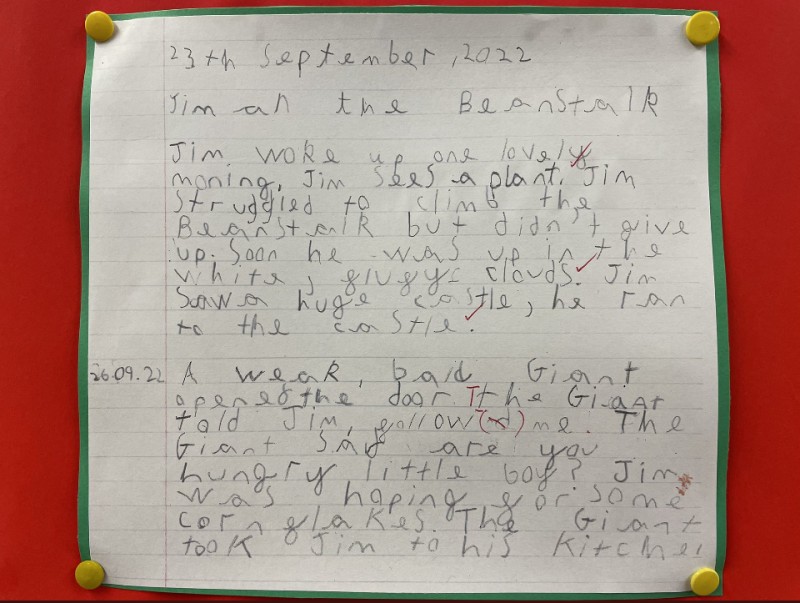 23th September, 2022
Jim an the BeanStalk
Jim woke up one lovely
moning, Jim Sees a plant. Jim
Struggled to climb the
BeanStalk but didn't give
up. Soon he was up in the
white, glugyg clouds. Jim
Saw a huge castle, he ran
to the castle.
26.09.22 A weak, bald Giant
opened the door. The Giant
told Jim, gollow me. The
Giant Say are you
hungry little boy? Jim
was hoping gor some
corn glakes. The Giant
took Jim to his kitchen